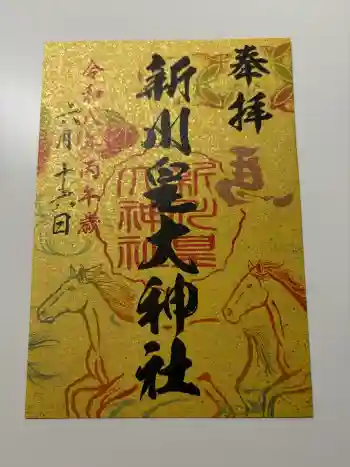 奉拝
馬
新川皇大神社
新川皇
大神社
令和八年丙午歳
六月十六日